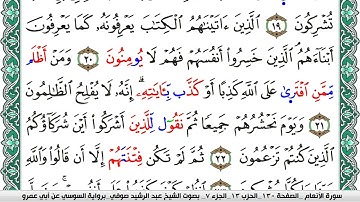 تُشْرِكُونَ ١٩ ٱلَّذِينَ ءَاتَيْنَٰهُمُ ٱلْكِتَٰبَ يَعْرِفُونَهُۥ كَمَا يَعْرِفُونَ
أَبْنَآءَهُمُ ٱلَّذِينَ خَسِرُوٓا۟ أَنفُسَهُمْ فَهُمْ لَا يُومِنُونَ ٢٠ وَمَنْ أَظْلَم
مِّمَّنِ ٱفْتَرَىٰ عَلَى ٱللَّهِ كَذِبًا أَوْ كَذَّب بِّـَٔايَٰتِهِۦٓ إِنَّهُۥ لَا يُفْلِحُ ٱلظَّٰلِمُونَ
٢١ وَيَوْمَ نَحْشُرُهُمْ جَمِيعًا ثُمَّ نَقُول لِّلَّذِينَ أَشْرَكُوٓا۟ أَيْنَ شُرَكَآؤُكُمُ
ٱلَّذِينَ كُنتُمْ تَزْعُمُونَ ٢٢ ثُمَّ لَمْ تَكُن فِتْنَتَهُمْ إِلَّآ أَن قَالُوا۟ وَٱللَّهِ
سورة الأنعام _ الصفحة ١٣٠ _ الحزب ١٣ _ الجزء ٧ _ بصوت الشيخ عبد الرشيد صوفي _ برواية السوسي عن أبي عمرو